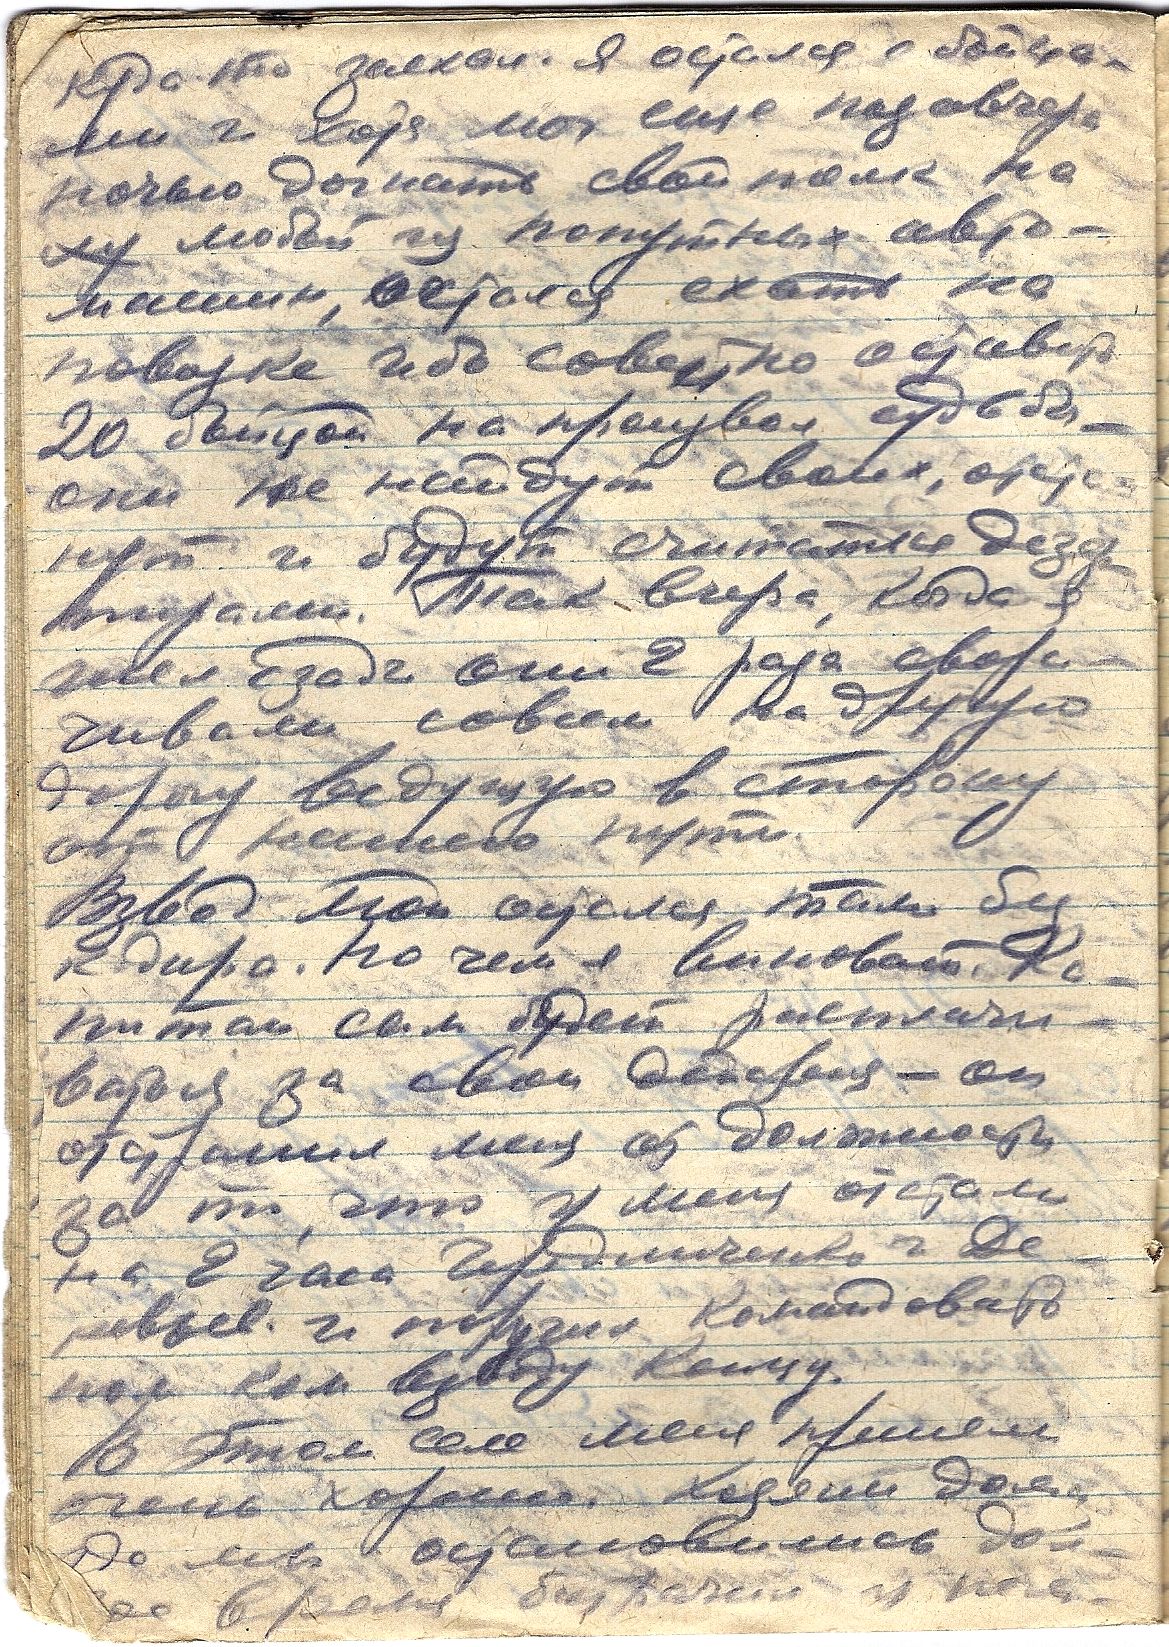 куда-то заехал. Я остался с бойца-
ми и хотя мог еще позавчера
ночью догнать свой полк на
любой из попутных авто-
машин, остался ехать на
повозке ибо совестно оставить
20 бойцов на произвол судьбы –
они не найдут своих, отста-
нут и будут считаться дезер-
тирами. Так вчера, когда я
шел сзади они 2 раза свора-
чивали совсем на другую
дорогу ведущую в сторону
от нашего пути.
Взвод мой остался там без
к-дира. Но чем я виноват. Ка-
питан сам будет расплачи-
ваться за свои действия – он
отстранил меня от должности
за то, что у меня отстали
на 2 часа Чередниченко и
и поручил командовать
пом ком взводу
В этом селе меня приняли
очень хорошо. Хозяин дома
где мы остановились
время